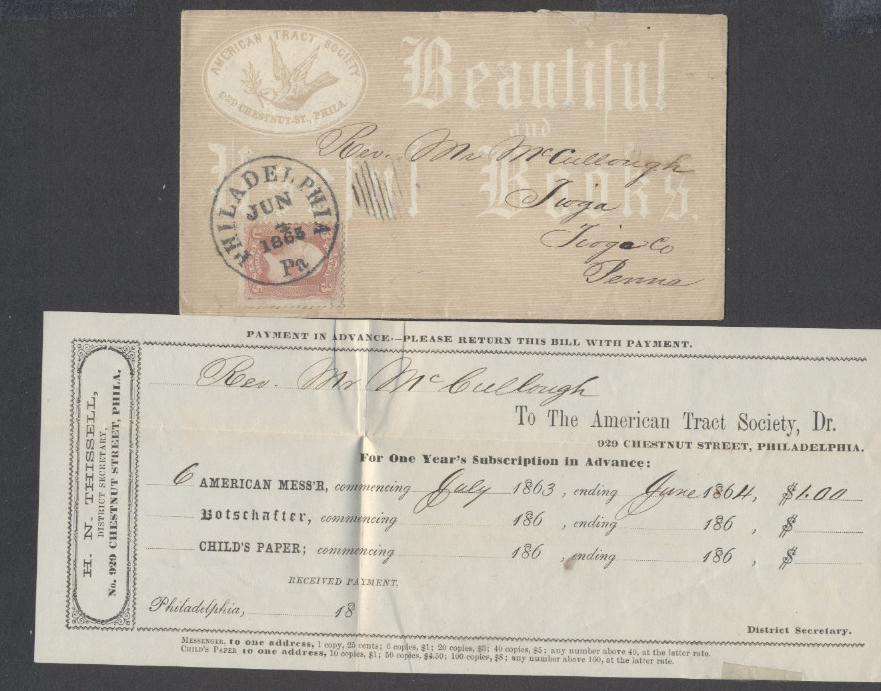 AMERICAN TRACT SOCIETY
929 CHESTNUT-ST., PHILA.
Beautiful
and
Books.
Rev. Mr McCullough
Tioga
Tioga Co
Penna
PHILADELPHIA
JUN
3
1863
Pa
PAYMENT IN ADVANCE.—PLEASE RETURN THIS BILL WITH PAYMENT.
H. N. THISSELL,
DISTRICT SECRETARY,
No. 929 CHESTNUT STREET, PHILA.
Rev. Mr McCullough
To The American Tract Society, Dr.
929 CHESTNUT STREET, PHILADELPHIA.
For One Year's Subscription in Advance:
6 AMERICAN MESS'R, commencing July 1863, ending June 1864, $1.00
Botschafter, commencing 186 , ending 186 , $
CHILD'S PAPER; commencing 186 , ending 186 , $
RECEIVED PAYMENT.
Philadelphia, 18
District Secretary.
MESSENGER, to one address, 1 copy, 25 cents; 6 copies, $1; 20 copies, $3; 40 copies, $5; any number above 40, at the latter rate.
CHILD'S PAPER to one address, 10 copies, $1; 50 copies, $4.50; 100 copies, $8; any number above 100, at the latter rate.